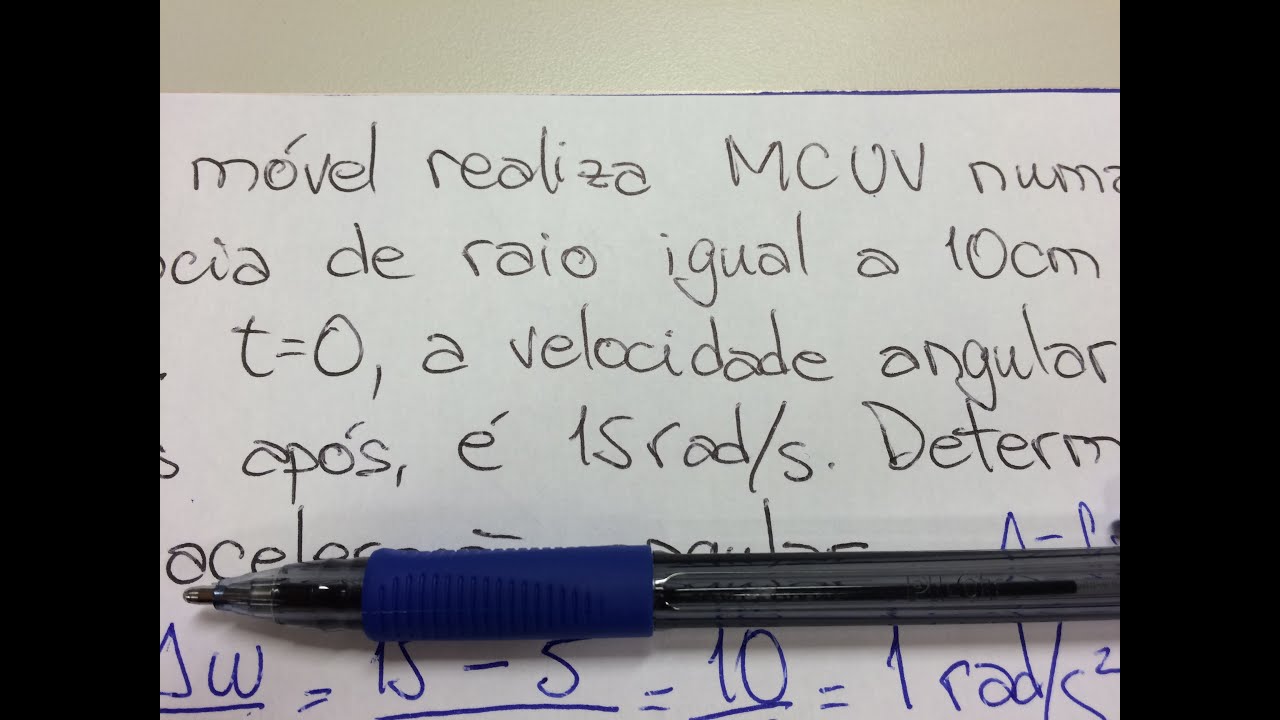 móvel realiza MCUV numa
ocia de raio igual a 10cm
t=0, a velocidade angular
s após, é 15rad/s. Determ
Δw = 15 - 5 = 10 = 1 rad/s²